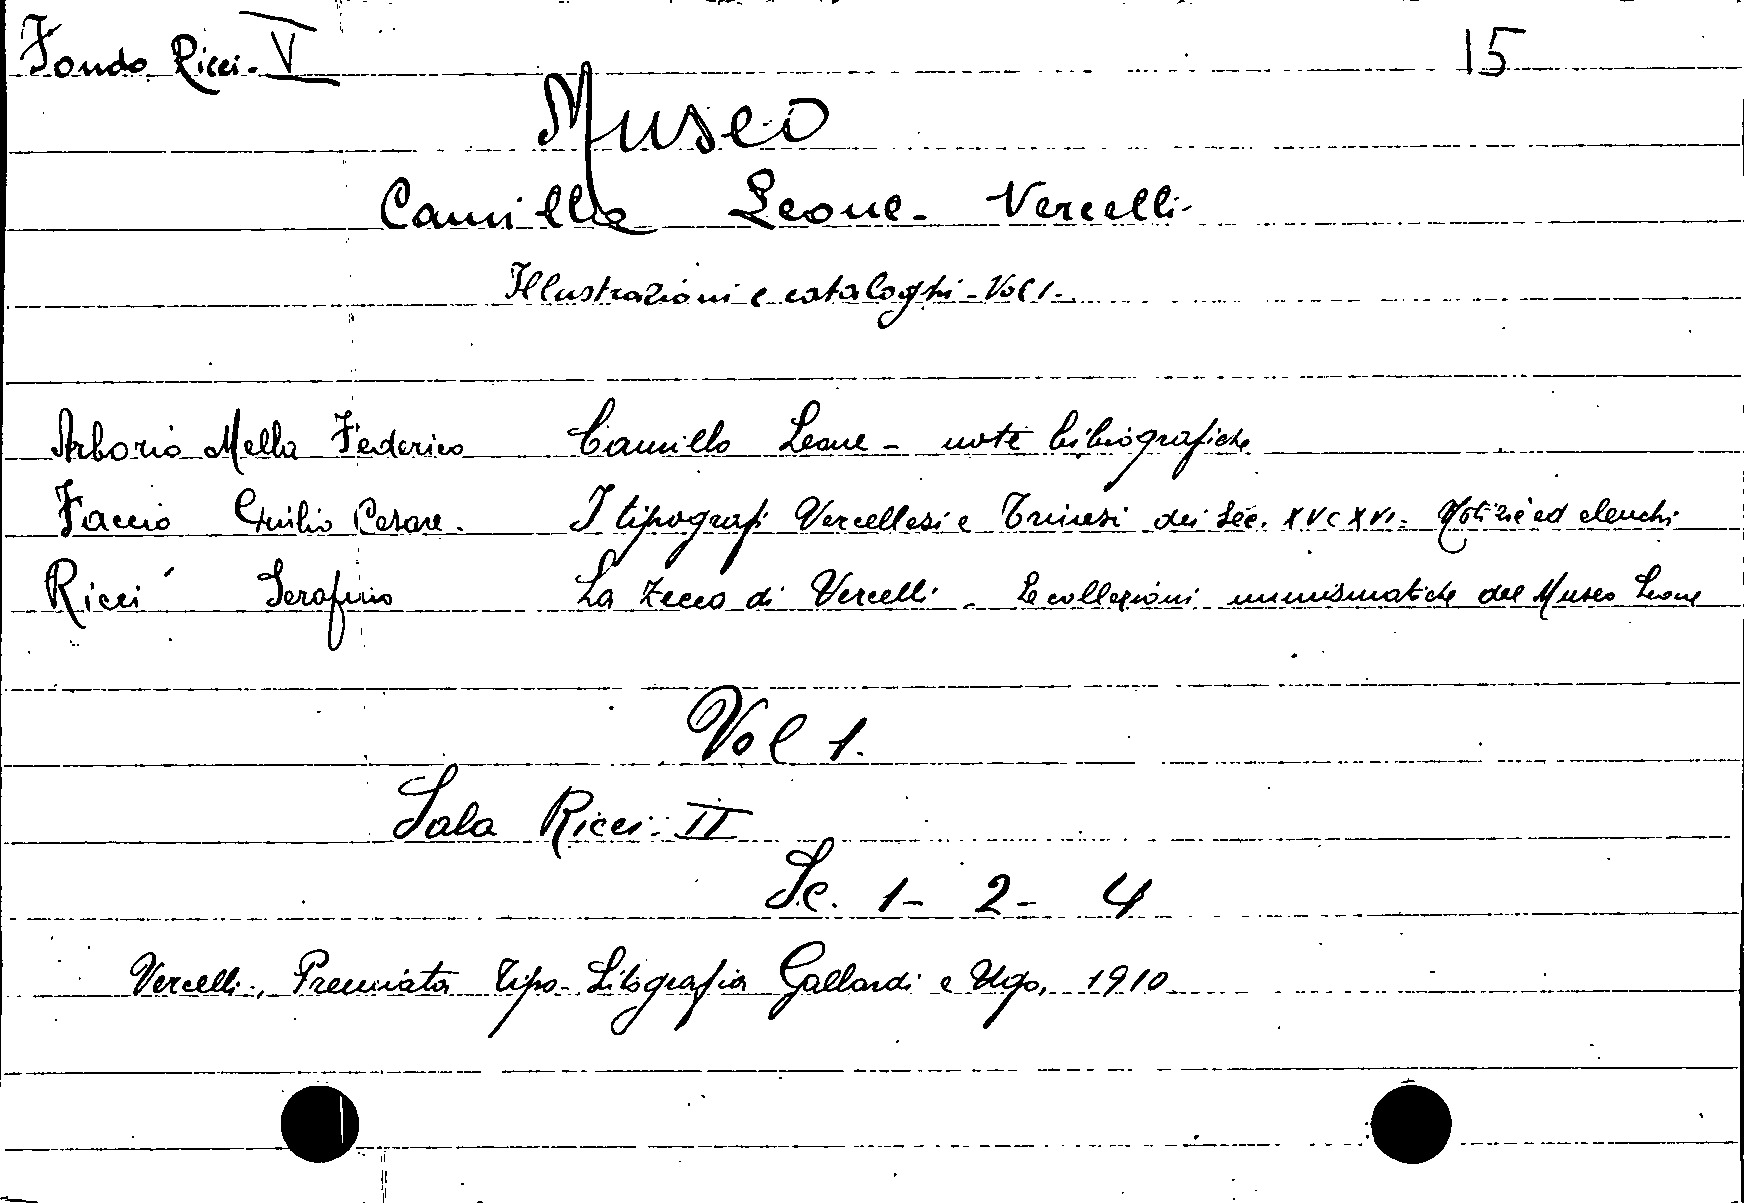 Fondo Ricci - V 15
Museo
Camillo Leone - Vercelli -
Illustrazioni e cataloghi - Vol 1 -
Arborio Mella Federico Camillo Leone - note bibiografiche
Faccio Emilio Cesare. I tipografi Vercellesi e Trinesi dei Sec. XV e XVI - Notizie ed elenchi
Ricci Serafino La zecca di Vercelli - Le collezioni numismatiche del Museo Leone
Vol 1.
Sala Ricci - II
Sc. 1 - 2 - 4
Vercelli -, Premiata Tipo - Litografia Gallardi e Ugo, 1910